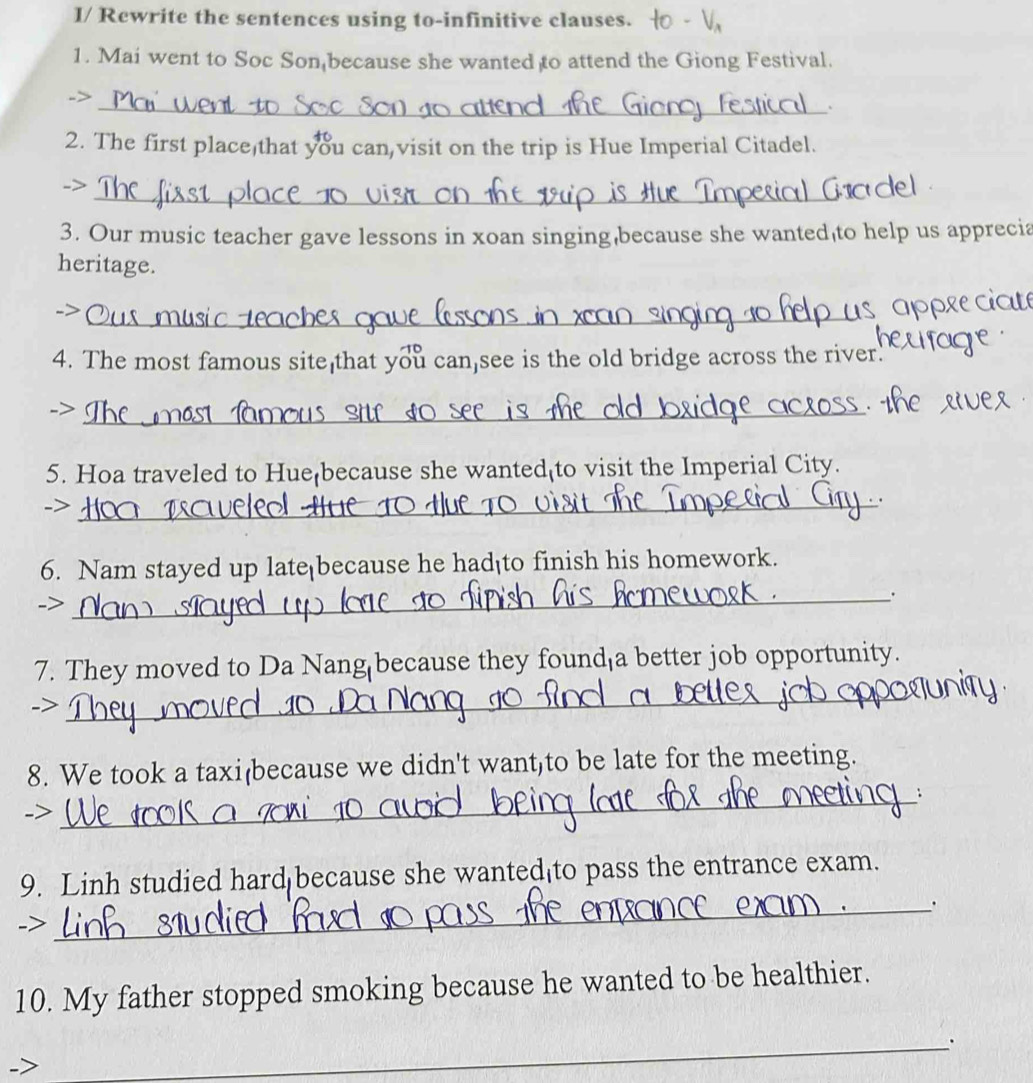 I/ Rewrite the sentences using to-infinitive clauses. to - V
1. Mai went to Soc Son, because she wanted to attend the Giong Festival.
-> Mai went to Soc Son to attend the Giong Festival.
to
2. The first place, that you can, visit on the trip is Hue Imperial Citadel.
-> The first place to visit on the trip is Hue Imperial Citadel.
3. Our music teacher gave lessons in xoan singing, because she wanted to help us apprecia
heritage.
-> Our music teacher gave lessons in xoan singing to help us appreciate
heritage.
to
4. The most famous site, that you can, see is the old bridge across the river.
-> The most famous site to see is the old bridge across. the river.
5. Hoa traveled to Hue, because she wanted to visit the Imperial City.
-> Hoa traveled Hue to Hue to visit the Imperial City.
6. Nam stayed up late because he had to finish his homework.
-> Nam stayed up late to finish his homework.
7. They moved to Da Nang, because they found a better job opportunity.
-> They moved to Da Nang to find a better job opportunity.
8. We took a taxi, because we didn't want, to be late for the meeting.
-> We took a taxi to avoid being late for the meeting.
9. Linh studied hard, because she wanted to pass the entrance exam.
-> Linh studied hard to pass the entrance exam.
10. My father stopped smoking because he wanted to be healthier.
-> .